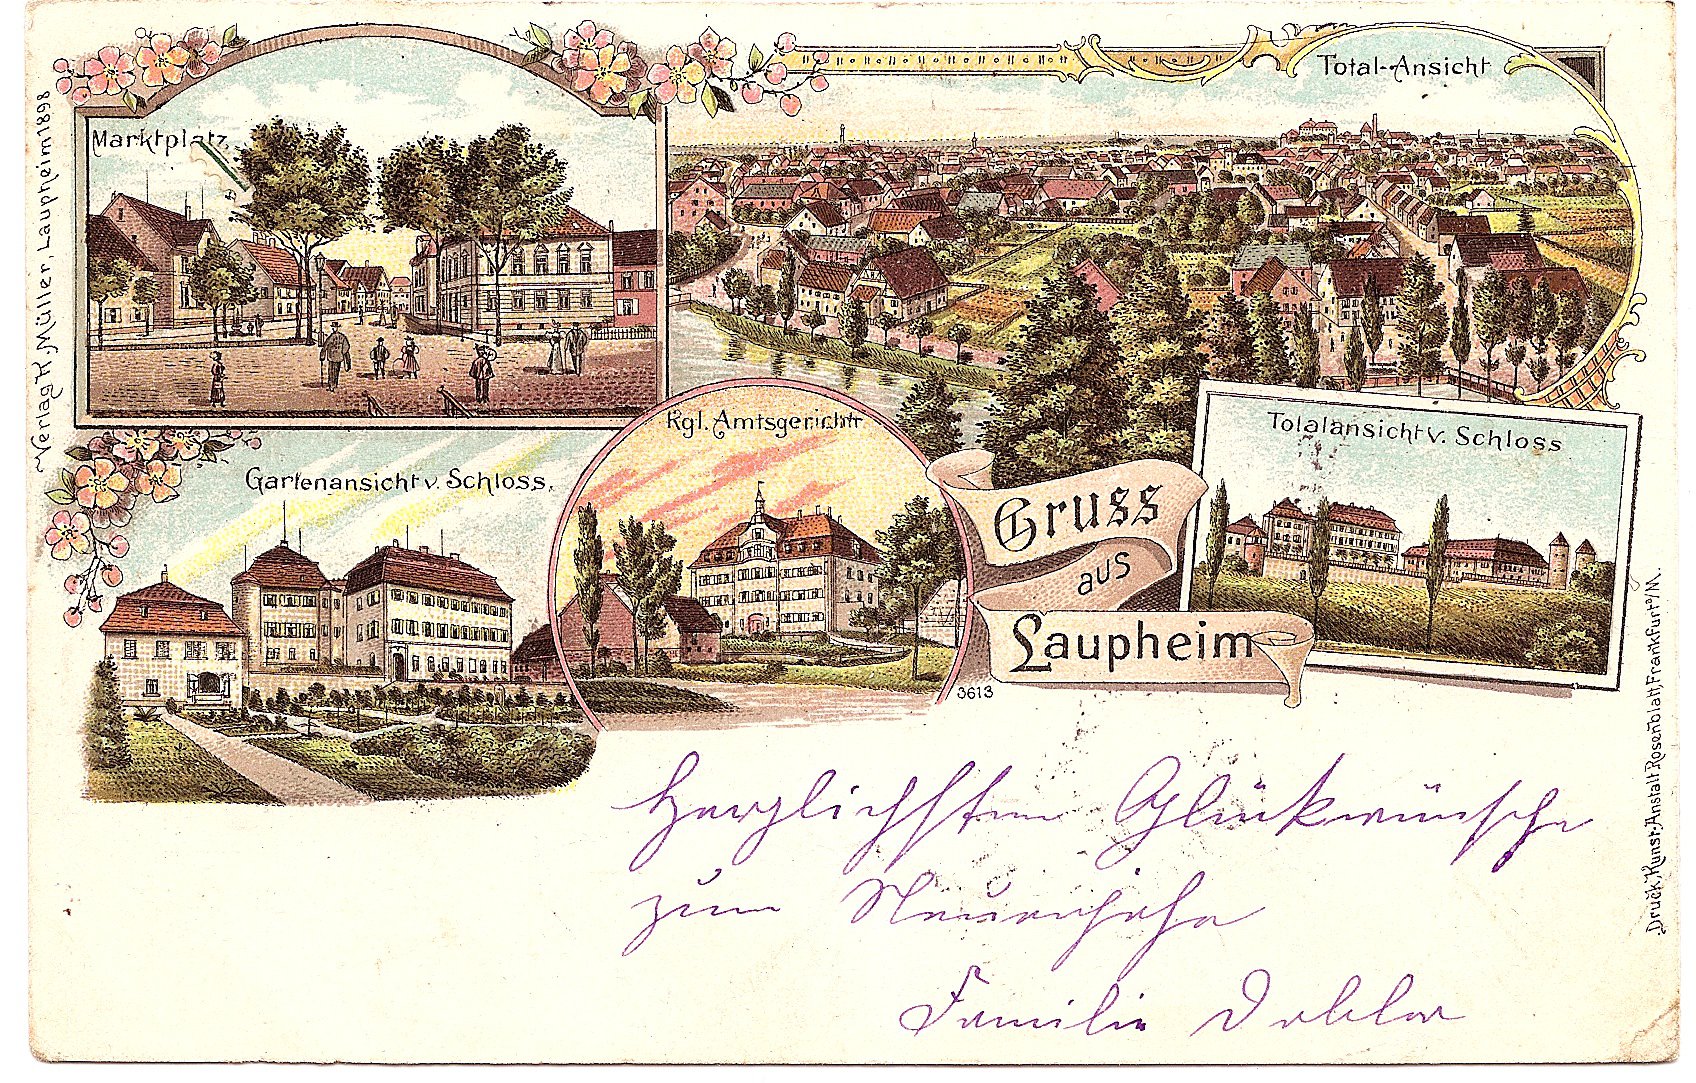 Marktplatz.
Total-Ansicht
Verlag K. Müller, Laupheim 1898
Kgl. Amtsgericht
Totalansicht v. Schloss
Gartenansicht v. Schloss.
Gruss
aus
Laupheim
3613
Druck, Kunst-Anstalt Rosenblatt, Frankfurt a/M.
Herzlichsten Glückwünsche
zum Neuenjahr
Familie